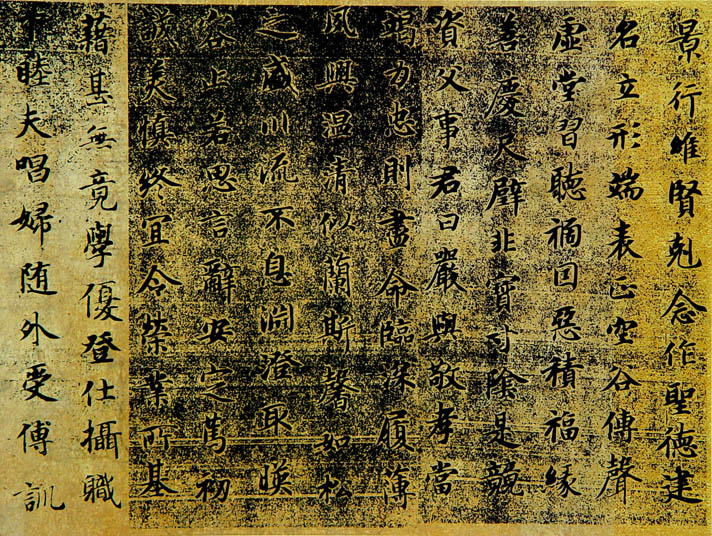 景行維賢剋念作聖德建
名立形端表正空谷傳聲
虛堂習聽禍因惡積福緣
善慶尺璧非寶寸陰是競
資父事君曰嚴與敬孝當
竭力忠則盡命臨深履薄
夙興温清似蘭斯馨如松
之盛川流不息淵澄取暎
容止若思言辭安定篤初
誠美慎終宜令榮業所基
藉甚無竟學優登仕攝職
下睦夫唱婦随外受傅訓